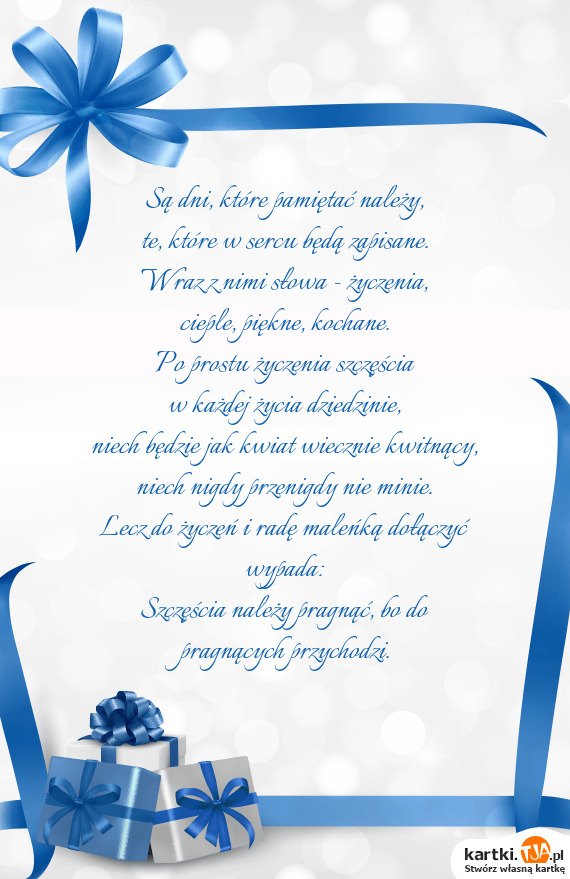 Są dni, które pamiętać należy,
te, które w sercu będą zapisane.
Wraz z nimi słowa - życzenia,
ciepłe, piękne, kochane.
Po prostu życzenia szczęścia
w każdej życia dziedzinie,
niech będzie jak kwiat wiecznie kwitnący,
niech nigdy przenigdy nie minie.
Lecz do życzeń i radę maleńką dołączyć
wypada:
Szczęścia należy pragnąć, bo do
pragnących przychodzi.
kartki.TJA.pl
Stwórz własną kartkę